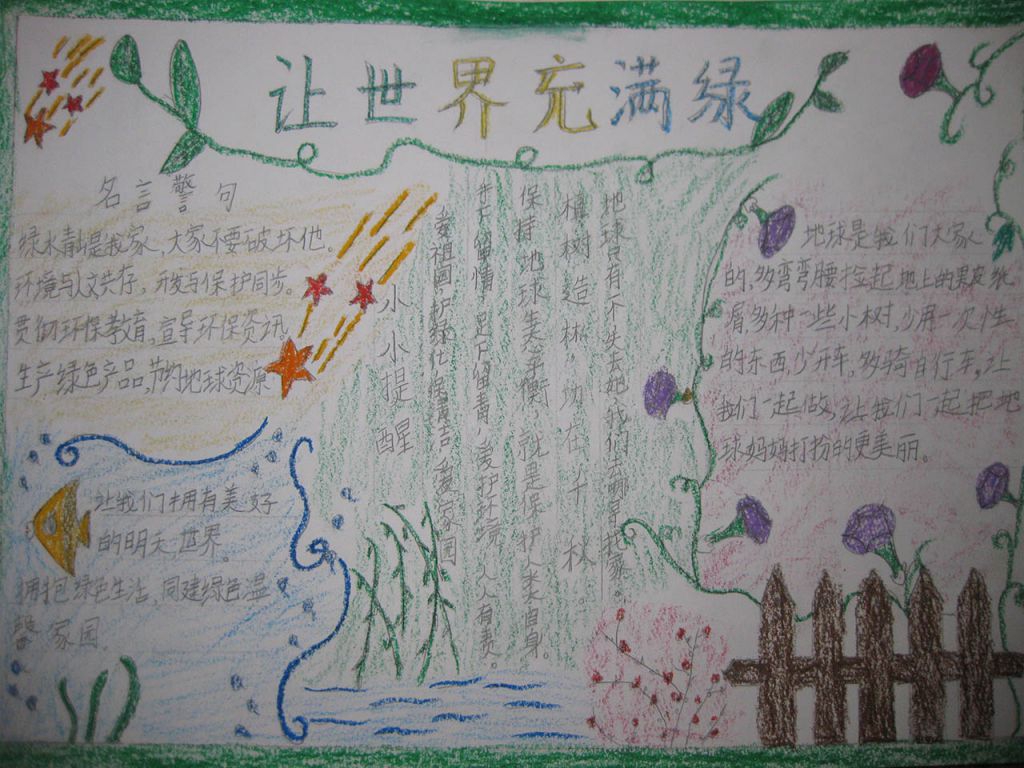 让世界充满绿
名言警句
绿水青山是我家,大家不要破坏他。
环境与人类共存,开发与保护同步。
贯彻环保教育,宣导环保资讯
生产绿色产品,节约地球资源
让我们拥有美好
的明天世界。
拥抱绿色生活,同建绿色温
馨家园.
小小提醒
地球只有一个失去她我们去哪寻找家。
植树造林,功在千秋
保持地球生态平衡,就是保护人类自身。
手下留情 足下留青 爱护环境,人人有责。
爱祖国护绿化保青吉爱家园
地球是我们大家
的,多弯弯腰捡起地上的果皮纸
屑,多种一些小树,少用一次性
的东西,少开车,多骑自行车,让
我们一起做,让我们一起把地
球妈妈打扮的更美丽。